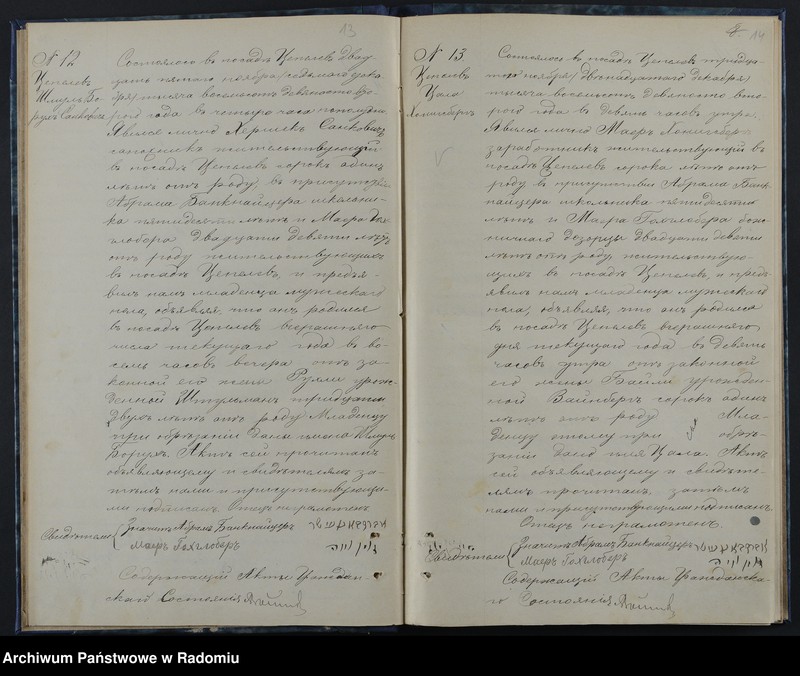 13
№ 12
Цепелев
Шмуль Бо-
рух Санкович
Состоялось в посаде Цепелев двад-
цать пятого ноября (седьмого дека-
бря) тысяча восемьсот девяносто вто-
рого года в четыре часа пополудни
Явился лично Хершек Санкович
сапожник жительствующий
в посаде Цепелев сорок один
лет от роду, в присутствии
Абрама Банкнайцера школьни-
ка пятидесяти лет и Маера
глобера двадцати девяти лет
от роду жительствующих
в посаде Цепелев, и предъя-
вил нам младенца мужеского
пола, объявляя, что он родился
в посаде Цепелев вчерашнего
числа текущего года в во-
семь часов вечера от за-
конной его жены Рузли урож-
денной Штульман тридцати
двух лет от роду Младенцу
при обрезании дано имя Шмуль
Борух. Акт сей прочитан
объявляющему и свидетелям за-
тем нами и присутствующи-
ми подписан Отец неграмотен
Свидетели { Значит Абрам Банкнайцер
Маер Гохглобер
Содержащий Акты Граждан-
ского Состояния
14
№ 13
Цепелев
Цала
Состоялось в посаде Цепелев тридца-
того ноября (двенадцатого декабря)
тысяча восемьсот девяносто вто-
рого года в девять часов утра.
Явился лично Маер
заработник жительствующий в
посаде Цепелев сорока лет от
роду в присутствии Абрама Банк-
найцера школьника пятидесяти
лет и Маера Гохглобера бож-
ничного дозорцы двадцати девяти
лет от роду жительствую-
щих в посаде Цепелев, и предъ-
явил нам младенца мужеского
пола, объявляя, что он родился
в посаде Цепелев вчерашнего
дня текущего года в девять
часов утра от законной
его жены Байли урожден-
ной Вайнберг сорок один
лет от роду Мла-
денцу этому при обре-
зании дано имя Цала. Акт
сей объявляющему и свидете-
лям прочитан, затем
нами и присутствующими подписан
Отец неграмотен.
Свидетели { Значит Абрам Банкнайцер
Маер Гохглобер
Содержащий Акты Гражданска-
го Состояния
Archiwum Państwowe w Radomiu